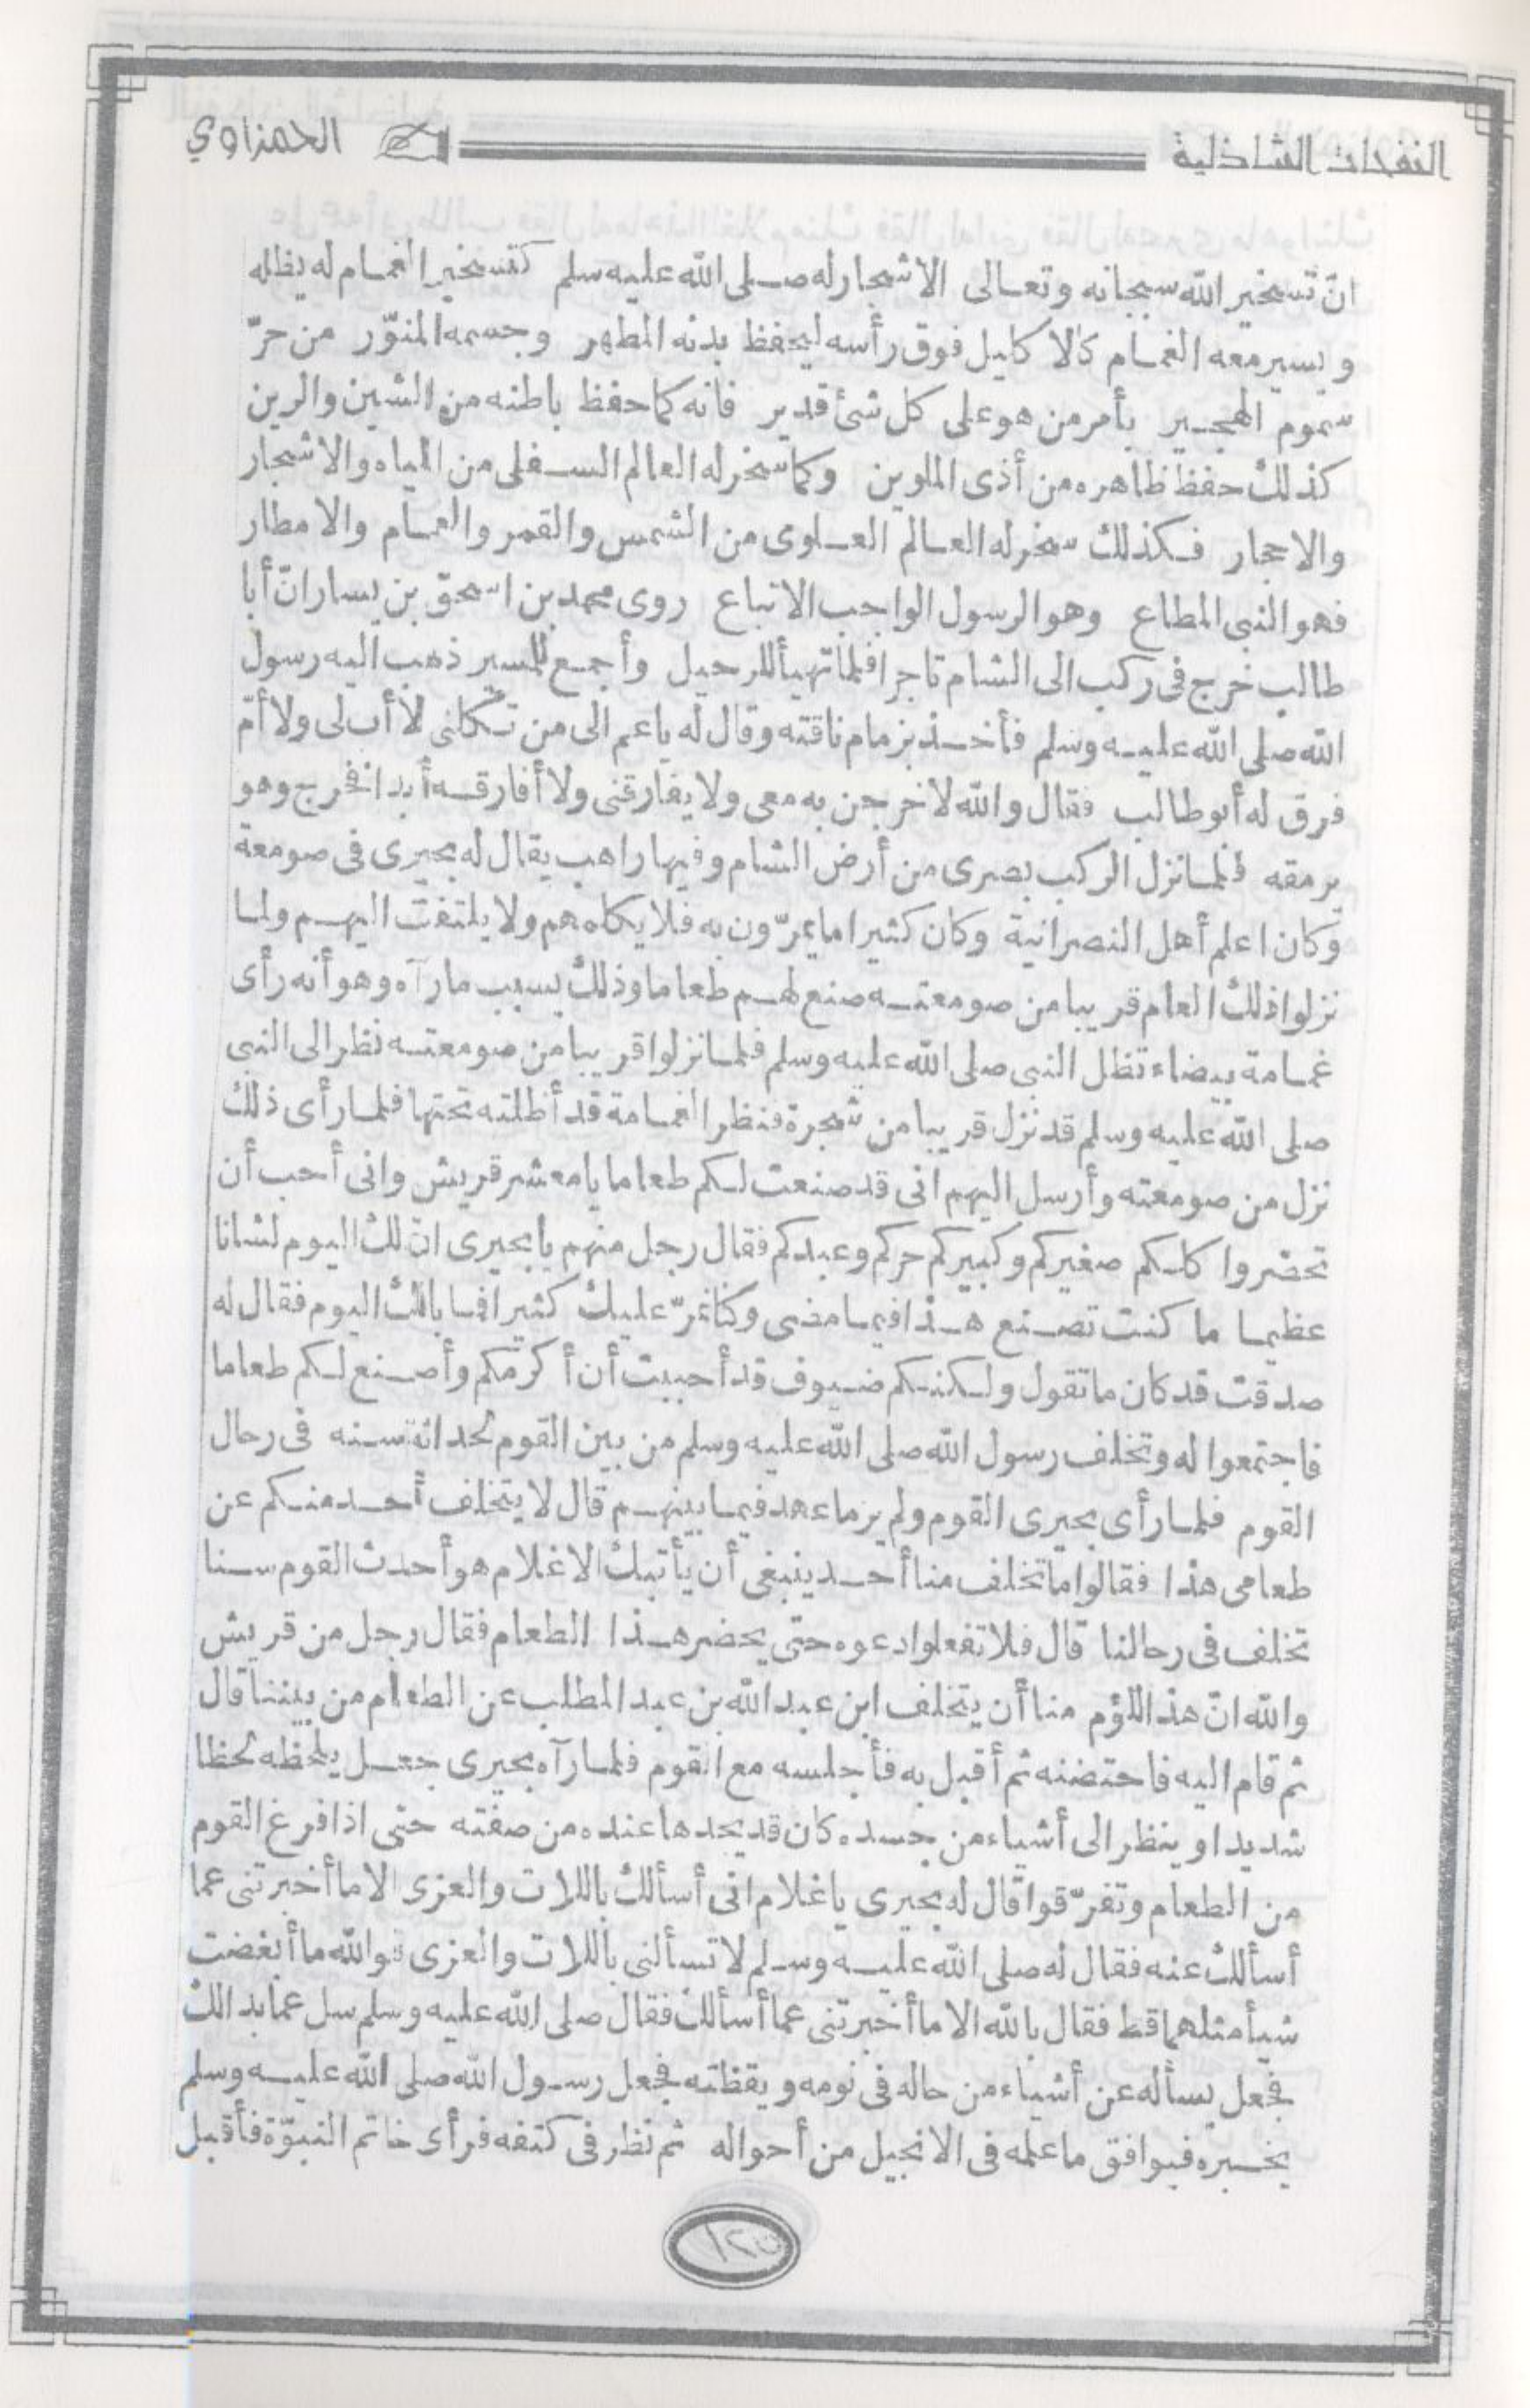 النفحات الشاذلية
الحمزاوي
انّ تسخير الله سبحانه وتعالى الاشجار له صلى الله عليه سلم كتسخير الغمام له يظله
ويسير معه الغمام كالاكليل فوق رأسه ليحفظ بدنه المطهر وجسمه المنوّر من حرّ
سموم الهجير بأمر من هو على كل شئ قدير فانه كما حفظ باطنه من الشين والرين
كذلك حفظ ظاهره من أذى الملوين وكما سخر له العالم السفلى من المياه والاشجار
والاحجار فكذلك سخر له العالم العلوى من الشمس والقمر والغمام والامطار
فهو النبى المطاع وهو الرسول الواجب الاتباع روى محمد بن اسحق بن يسار انّ أبا
طالب خرج فى ركب الى الشام تاجرا فلما تهيأ للرحيل وأجمع للمسير ذهب اليه رسول
الله صلى الله عليه وسلم فأخذ بزمام ناقته وقال له ياعم الى من تكلنى لا أب لى ولا أمّ
فرق له أبو طالب فقال والله لاخرجن به معى ولا يفارقنى ولا أفارقه أبدا فخرج وهو
يرمقه فلما نزل الركب بصرى من أرض الشام وفيها راهب يقال له بحيرى فى صومعة
وكان اعلم أهل النصرانية وكان كثيرا ما يمرّون به فلا يكلمهم ولا يلتفت اليهم ولما
نزلوا ذلك العام قريبا من صومعته صنع لهم طعاما وذلك بسبب ما رآه وهو أنه رأى
غمامة بيضاء تظل النبى صلى الله عليه وسلم فلما نزلوا قريبا من صومعته نظر الى النبى
صلى الله عليه وسلم قد نزل قريبا من شجرة فنظر الغمامة قد أظلته تحتها فلما رأى ذلك
نزل من صومعته وأرسل اليهم انى قد صنعت لكم طعاما يا معشر قريش وانى أحب أن
تحضروا كلكم صغيركم وكبيركم حركم وعبدكم فقال رجل منهم يا بحيرى انّ لك اليوم لشانا
عظيما ما كنت تصنع هذا فيما مضى وكنا نمرّ عليك كثيرا فما بالك اليوم فقال له
صدقت قد كان ما تقول ولكنكم ضيوف قد أحببت أن أكرمكم وأصنع لكم طعاما
فاجتمعوا له وتخلف رسول الله صلى الله عليه وسلم من بين القوم لحداثة سنه فى رحال
القوم فلما رأى بحيرى القوم ولم ير ما عهد فيما بينهم قال لا يتخلف أحد منكم عن
طعامى هذا فقالوا ما تخلف منا أحد ينبغى أن يأتيك الا غلام هو أحدث القوم سنا
تخلف فى رحالنا قال فلا تفعلوا ادعوه حتى يحضر هذا الطعام فقال رجل من قريش
والله انّ هذا للؤم منا أن يتخلف ابن عبد الله بن عبد المطلب عن الطعام من بيننا قال
ثم قام اليه فاحتضنه ثم أقبل به فأجلسه مع القوم فلما رآه بحيرى جعل يلحظه لحظا
شديدا وينظر الى أشياء من جسده كان قد يجدها عنده من صفته حتى اذا فرغ القوم
من الطعام وتفرّقوا قال له بحيرى يا غلام انى أسألك باللات والعزى الا ما أخبرتنى عما
أسألك عنه فقال له صلى الله عليه وسلم لا تسألنى باللات والعزى فوالله ما أبغضت
شيأ مثلهما قط فقال بالله الا ما أخبرتنى عما أسألك فقال صلى الله عليه وسلم سل عما بدالك
فجعل يسأله عن أشياء من حاله فى نومه ويقظته فجعل رسول الله صلى الله عليه وسلم
يخبره فيوافق ما علمه فى الانجيل من أحواله ثم نظر فى كتفه فرأى خاتم النبوّة فأقبل